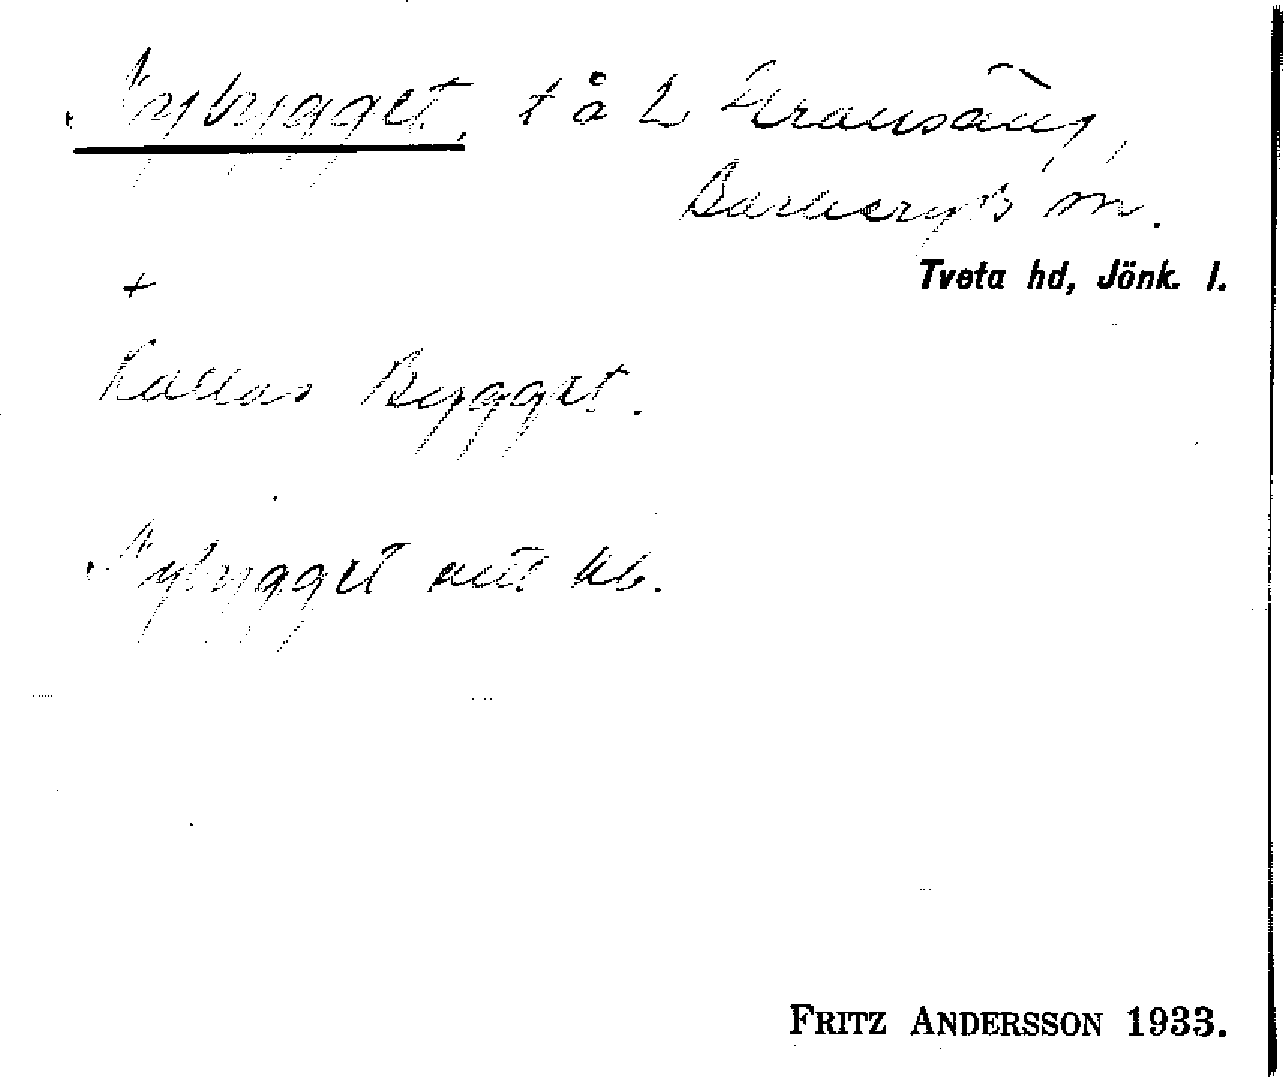 Nybygget, t å L Gransäng,
Barkeryds sn.
Tveta hd, Jönk. l.
+
Kallas Bygget.
Nybygget enl. kb.
FRITZ ANDERSSON 1933.